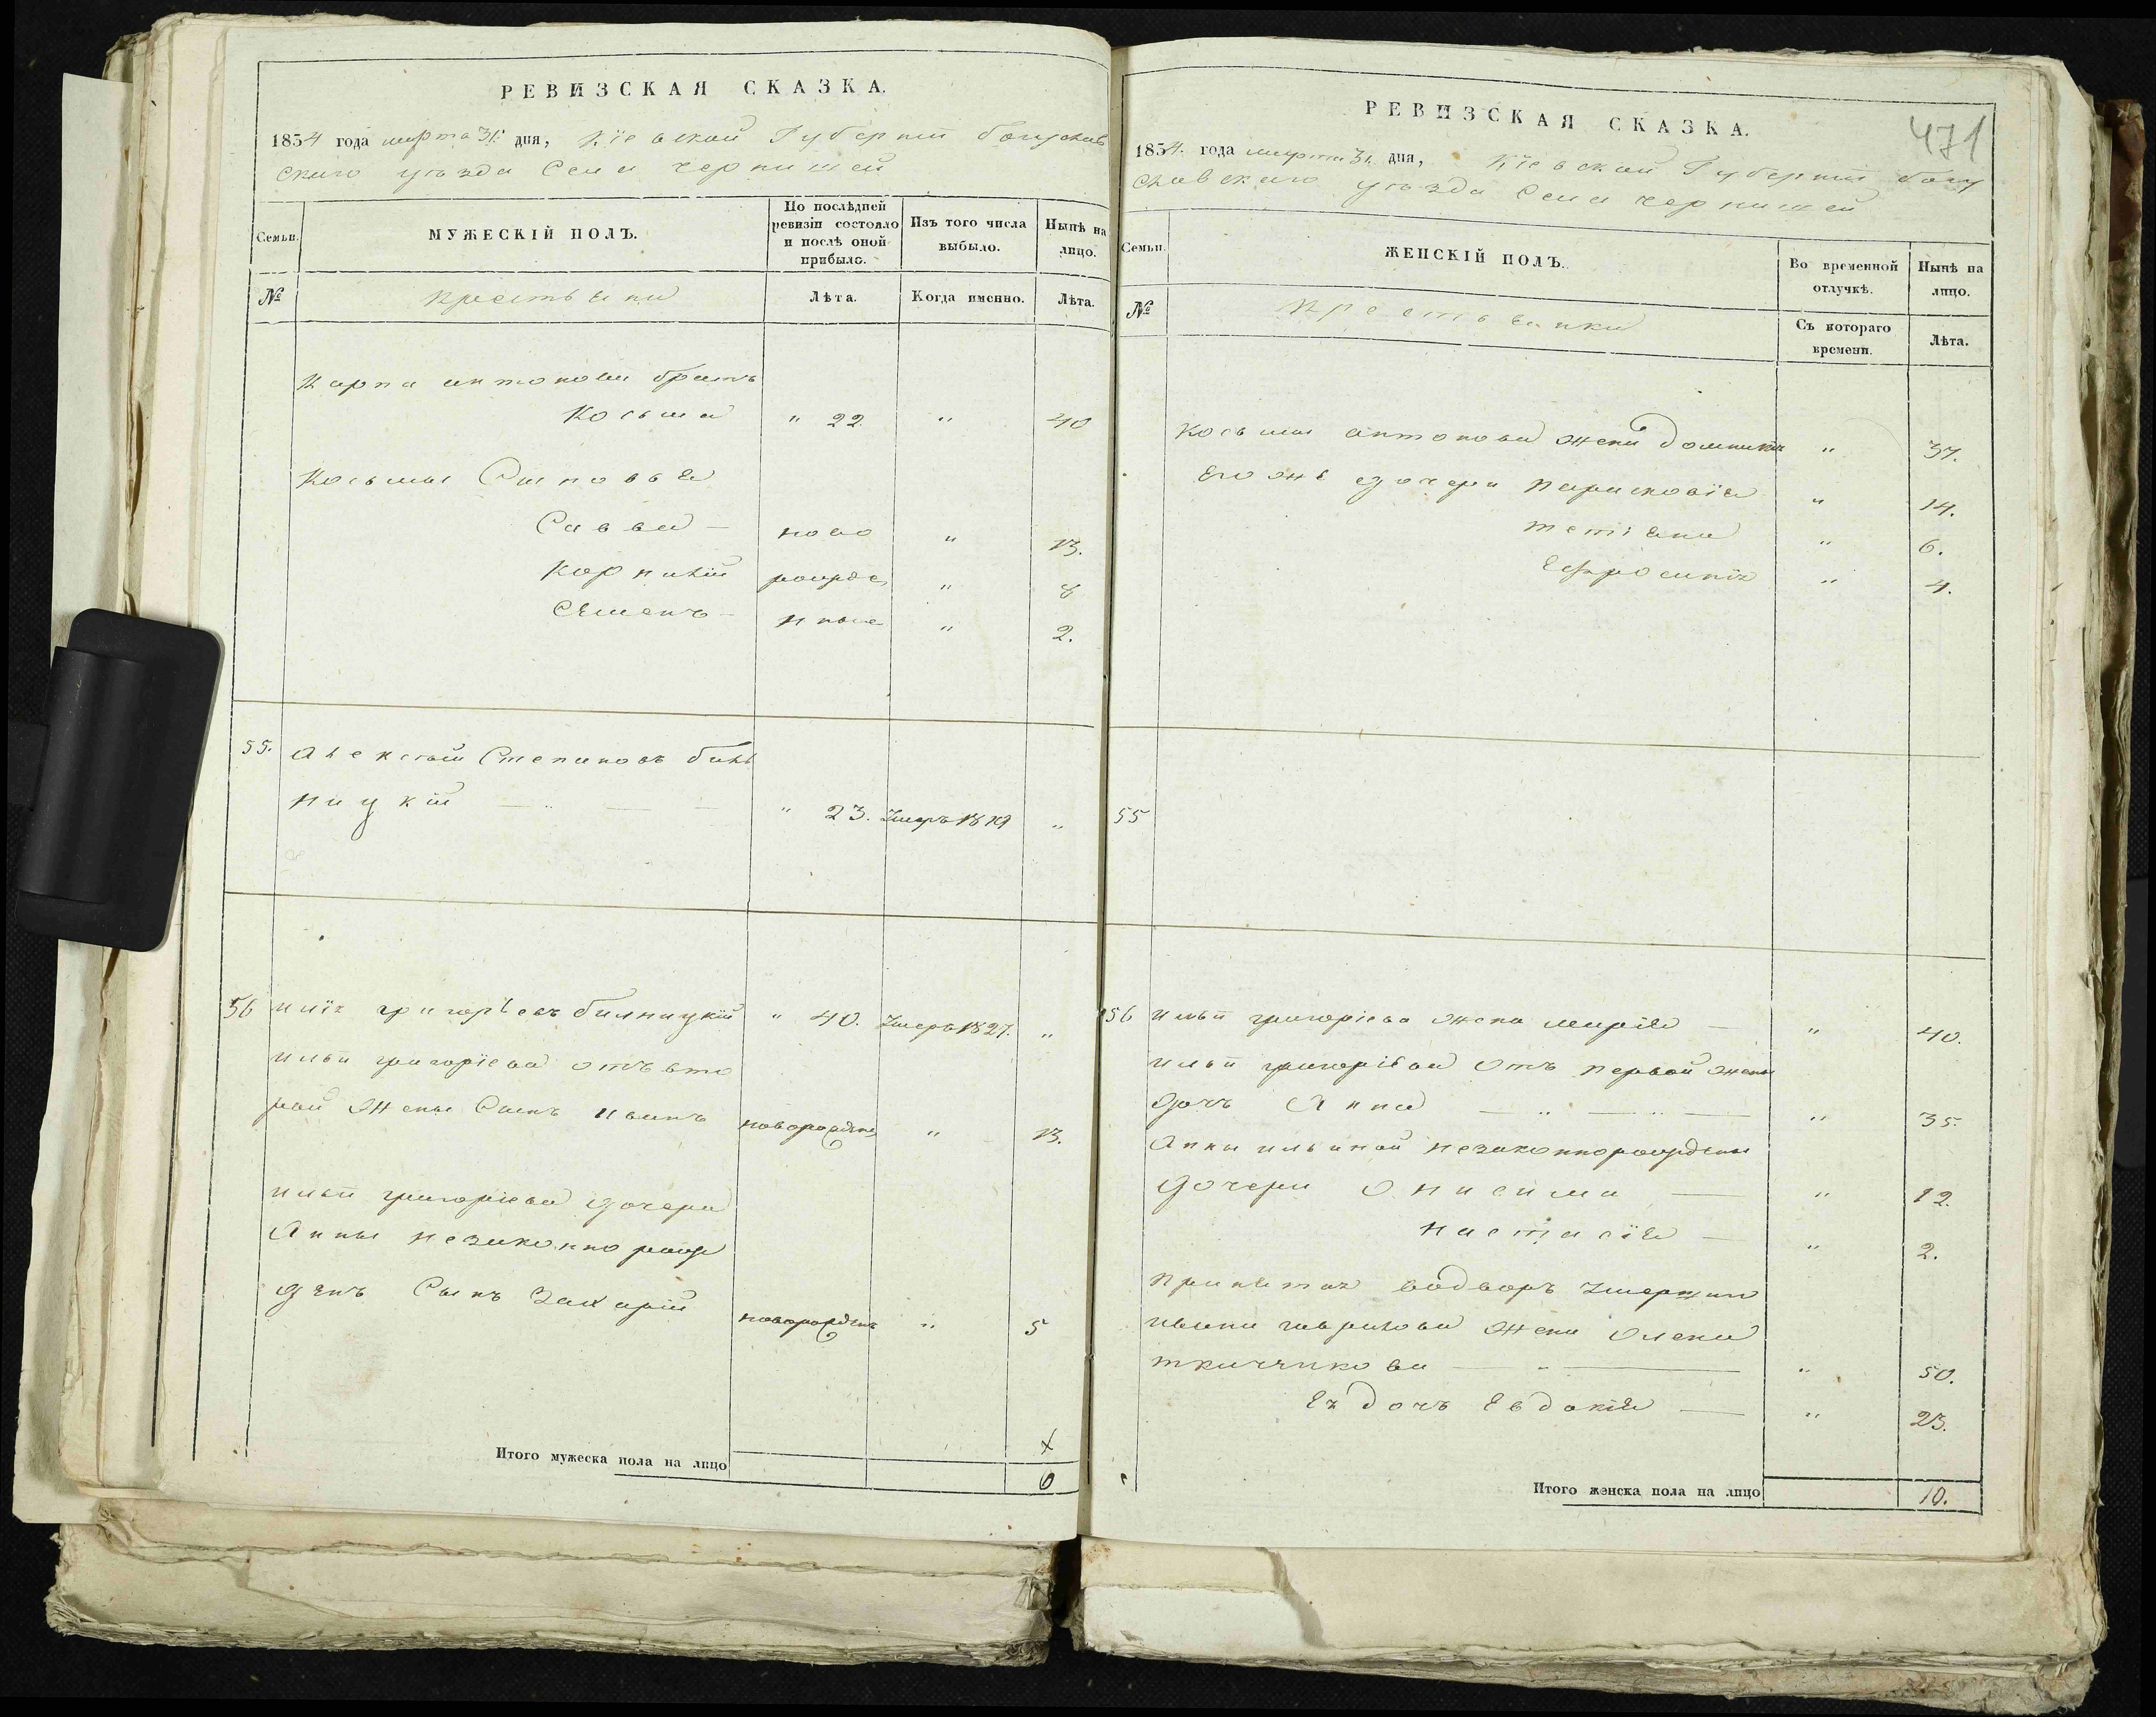 РЕВИЗСКАЯ СКАЗКА.
1854 года марта 31 дня, Кіевской Губерніи богуслав
скаго уезда Села чернишей
Семьи.
МУЖЕСКІЙ ПОЛЪ.
По послѣдней ревизіи состояло и послѣ оной прибыло.
Изъ того числа выбыло.
Нынѣ на лицо.
№
крестьяни
Лѣта.
Когда именно.
Лѣта.
Карпа антонова братъ
Косьма " 22 " 40
Косьмы Сыновья
Савва — ново " 13.
Корнилій рожде " 8
Семенъ — нные " 2.
55. Алексѣй Степановъ бил
ницкій " 23. Умеръ 18 "
56 илія григорьевъ билницкій " 40. Умеръ 1827. "
ильи григорієва отъ вто
рой жены Сынъ иванъ новорожден " 13.
ильи григорієва дочери
Анны незаконно рож
денъ Сынъ Захарій новорожденъ " 5
Итого мужеска пола на лицо
6
РЕВИЗСКАЯ СКАЗКА.
471
1854. года марта 31 дня, Кіевской Губерніи богу
славскаго уезда Села чернишей
Семьи.
ЖЕНСКІЙ ПОЛЪ.
Во временной отлучкѣ.
Нынѣ на лицо.
№
крестьянки
Съ котораго времени.
Лѣта.
Косьмы антонова жена домникія " 37.
Его же дочери парасковія " 14.
тетіяна " 6.
Ефросинія " 4.
55
56 ильи григоріева жена марія — " 40.
ильи григорієва отъ первой жены
дочь Анна " 35.
Анны ильиной незаконнорожденны
дочери Онисима — " 12.
настасія — " 2.
принята во дворъ умершаго
ивана гаврилова жена олена
ткачукова " 50.
Ея дочь Евдокія — " 23.
Итого женска пола на лицо
10.